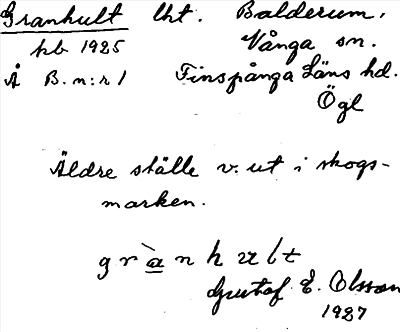 Granhult lht. Balderum,
hb 1925 Vånga sn.
Å B. n:r 1 Finspånga Läns hd.
Ögl
Äldre ställe v. ut i skogs-
marken.
grànhult
Gustaf E. Olsson
1927